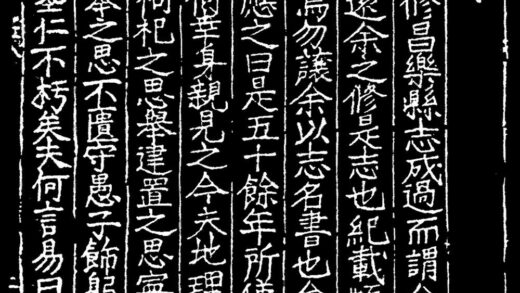 修昌樂縣志成過而謂
余之修是志也紀載
勿讓余以志名書也
應之曰是五十餘年所
幸身親見之今夫地理
祀之思舉建置之思
本之思不匱守愚子飾躬
仁不朽矣夫何言易曰